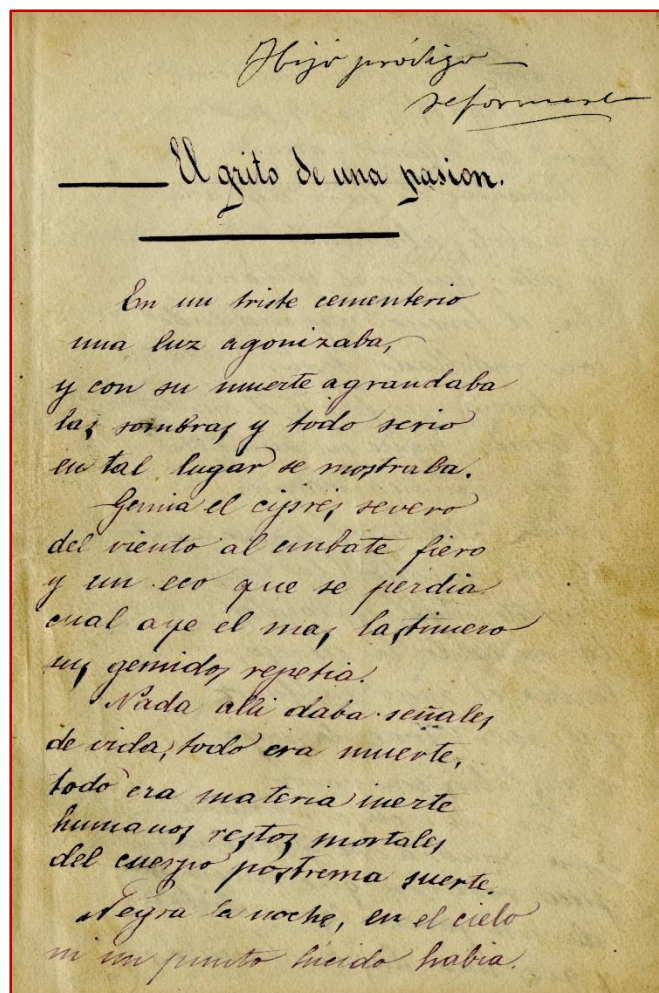 Hijo pródigo
reformar
El grito de una pasion.
En un triste cementerio
una luz agonizaba,
y con su muerte agrandaba
las sombras y todo serio
en tal lugar se mostraba.
Gemia el ciprés severo
del viento al embate fiero
y un eco que se perdia
cual aye el mas lastimero
sus gemidos repetia.
Nada alli daba señales
de vida, todo era muerte,
todo era materia inerte
humanos restos mortales
del cuerpo postrema suerte.
Negra la noche, en el cielo
ni un punto lucido habia.